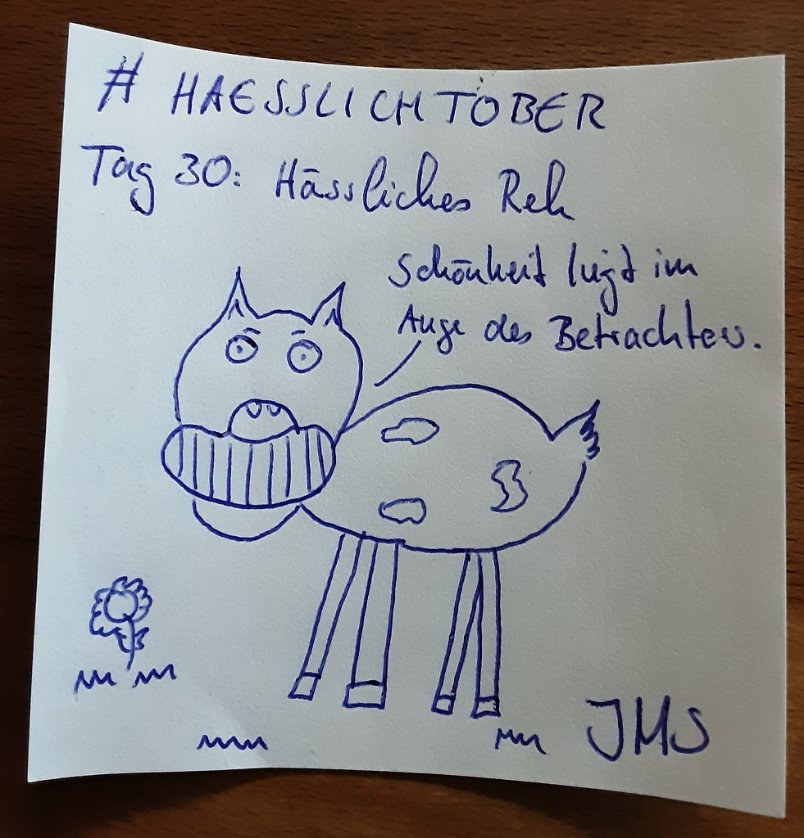 # HAESSLICHTOBER
Tag 30: Hässliches Reh
Schönheit liegt im
Auge des Betrachters.
JMS